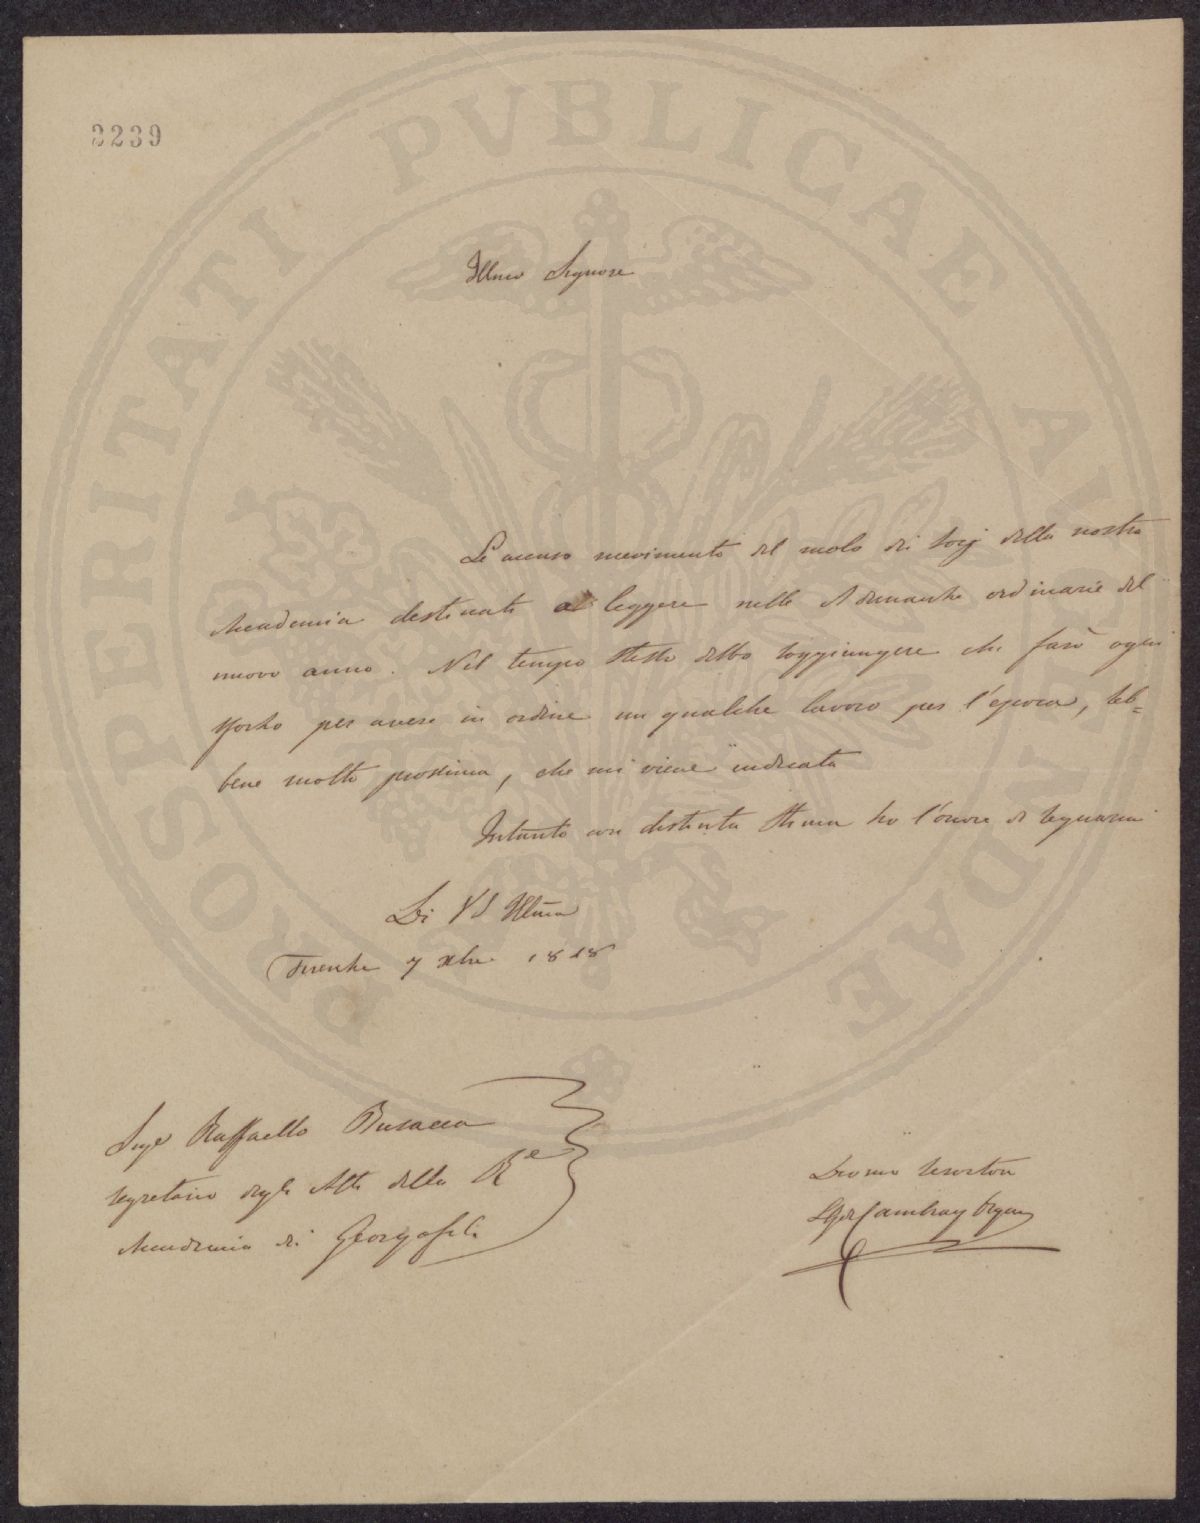 3239
PROSPERITATI PVBLICAE AVGENDAE
Illmo Signore
Le accuso ricevimento del ruolo dei socj della nostra
Accademia destinati a leggere nelle Adunanze ordinarie del
nuovo anno. Nel tempo stesso debbo soggiungere che farò ogni
sforzo per avere in ordine un qualche lavoro per l'epoca, seb=
bene molto prossima, che mi viene indicata
Intanto con distinta stima ho l'onore di segnarmi
Di VS Illma
Firenze 7 Xbre 1848
Sigre Raffaello Busacca
Segretario degli Atti della Re
Accademia di Georgofili
Devmo Servitore
Cambray Digny